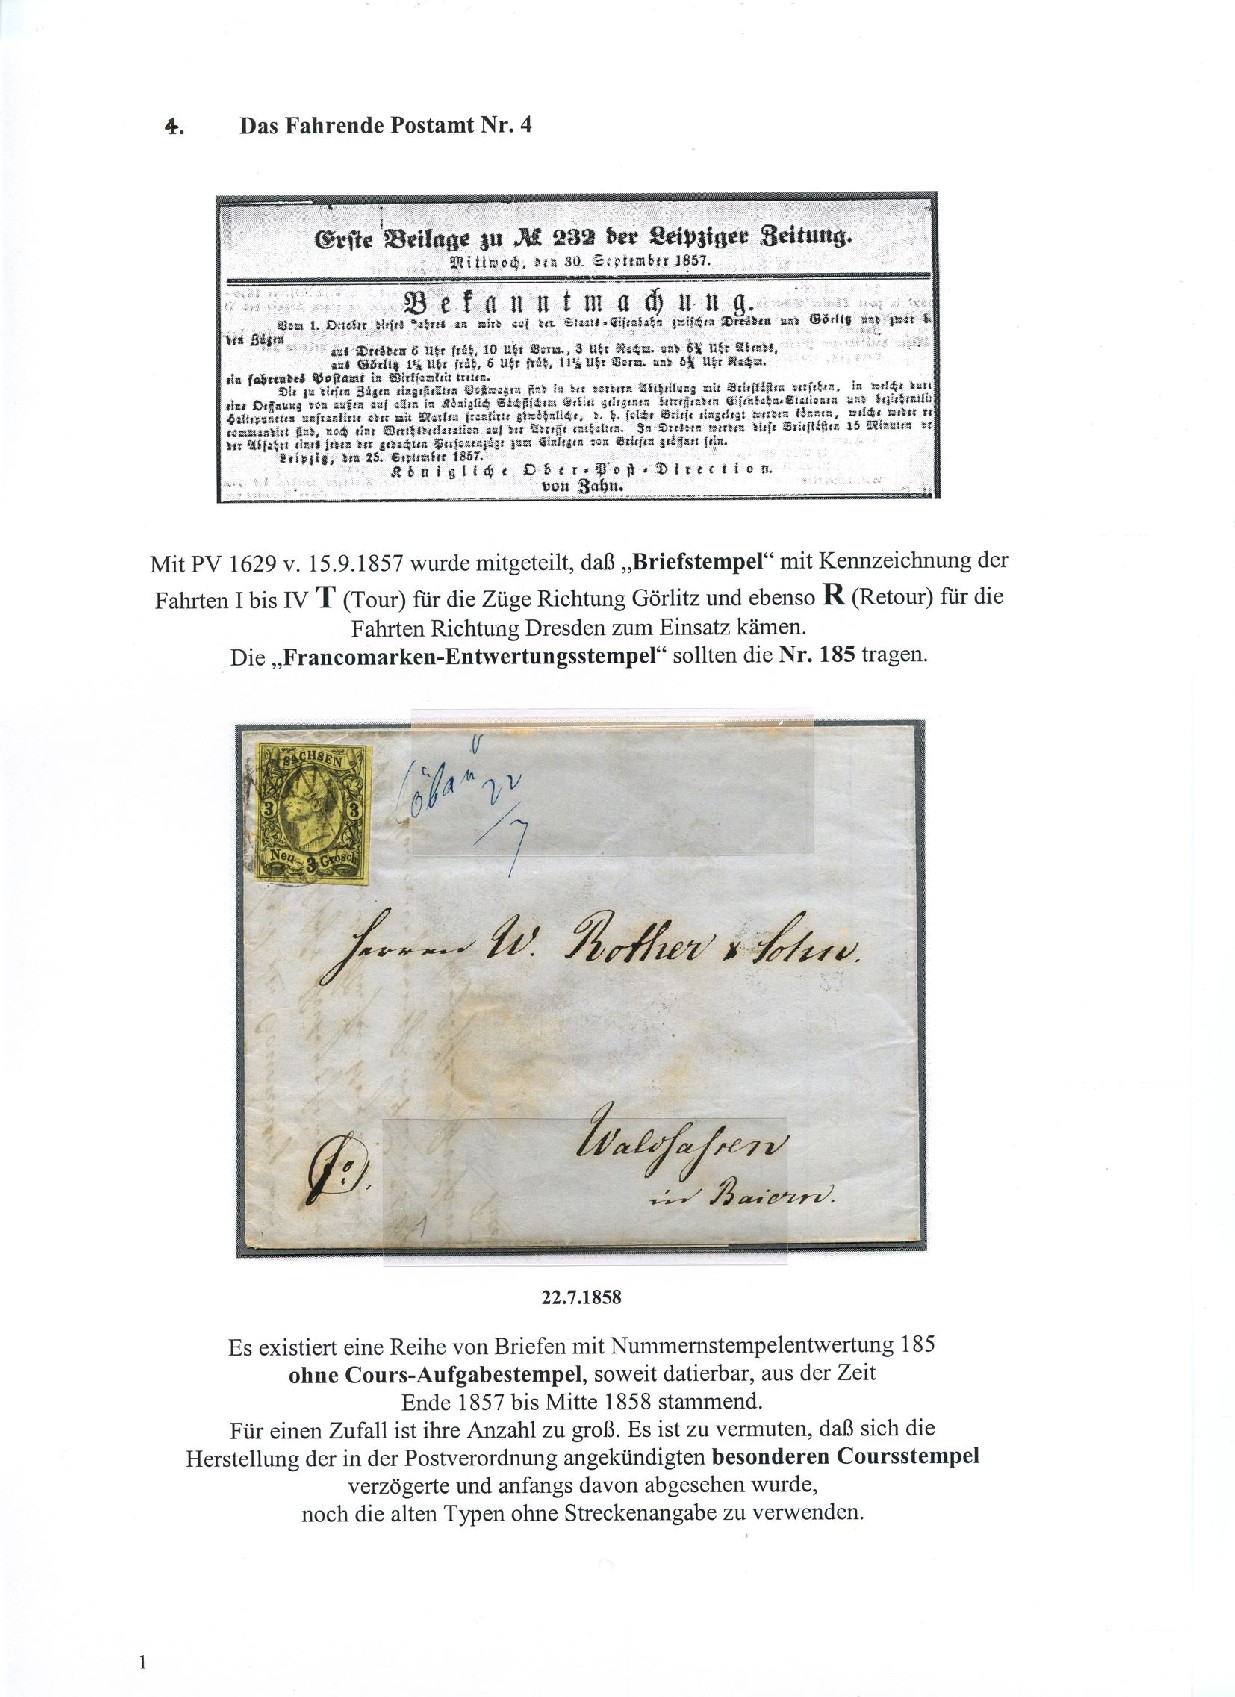 4. Das Fahrende Postamt Nr. 4
Erste Beilage zu № 232 der Leipziger Zeitung.
Mittwoch, den 30. September 1857.
Bekanntmachung.
Vom 1. October dieses Jahres an wird auf der Staats-Eisenbahn zwischen Dresden und Görlitz und zwar b
den Zügen
aus Dresden 6 Uhr früh, 10 Uhr Vorm., 3 Uhr Nachm. und Uhr Abends,
aus Görlitz Uhr früh, 6 Uhr früh, Uhr Vorm. und Uhr Nachm.
ein fahrendes Postamt in Wirksamkeit treten.
Die zu diesen Zügen eingestellten Postwagen sind in der vordern Abtheilung mit Briefkästen versehen, in welche durc
eine Oeffnung von außen auf allen in Königlich Sächsischem Gebiet gelegenen betreffenden Eisenbahn-Stationen und
Haltepuncten unfrankirte oder mit Marken frankirte gewöhnliche, d. h. solche Briefe eingelegt werden können, welche weder re
commandirt sind, noch eine Werthsdeclaration auf der Adresse enthalten. In Dresden werden diese Briefkästen 15 Minuten vo
der Abfahrt eines jeden der gedachten Personenzüge zum Einlegen von Briefen geöffnet sein.
Leipzig, den 25. September 1857.
Königliche Ober-Post-Direction.
von Zahn.
Mit PV 1629 v. 15.9.1857 wurde mitgeteilt, daß „Briefstempel“ mit Kennzeichnung der
Fahrten I bis IV T (Tour) für die Züge Richtung Görlitz und ebenso R (Retour) für die
Fahrten Richtung Dresden zum Einsatz kämen.
Die „Francomarken-Entwertungsstempel“ sollten die Nr. 185 tragen.
SACHSEN
3 3
Neu- 3 Grosch
Löbau 22/7
Herren W. Rother & Sohn.
Waldsassen
in Baiern.
22.7.1858
Es existiert eine Reihe von Briefen mit Nummernstempelentwertung 185
ohne Cours-Aufgabestempel, soweit datierbar, aus der Zeit
Ende 1857 bis Mitte 1858 stammend.
Für einen Zufall ist ihre Anzahl zu groß. Es ist zu vermuten, daß sich die
Herstellung der in der Postverordnung angekündigten besonderen Coursstempel
verzögerte und anfangs davon abgesehen wurde,
noch die alten Typen ohne Streckenangabe zu verwenden.
1